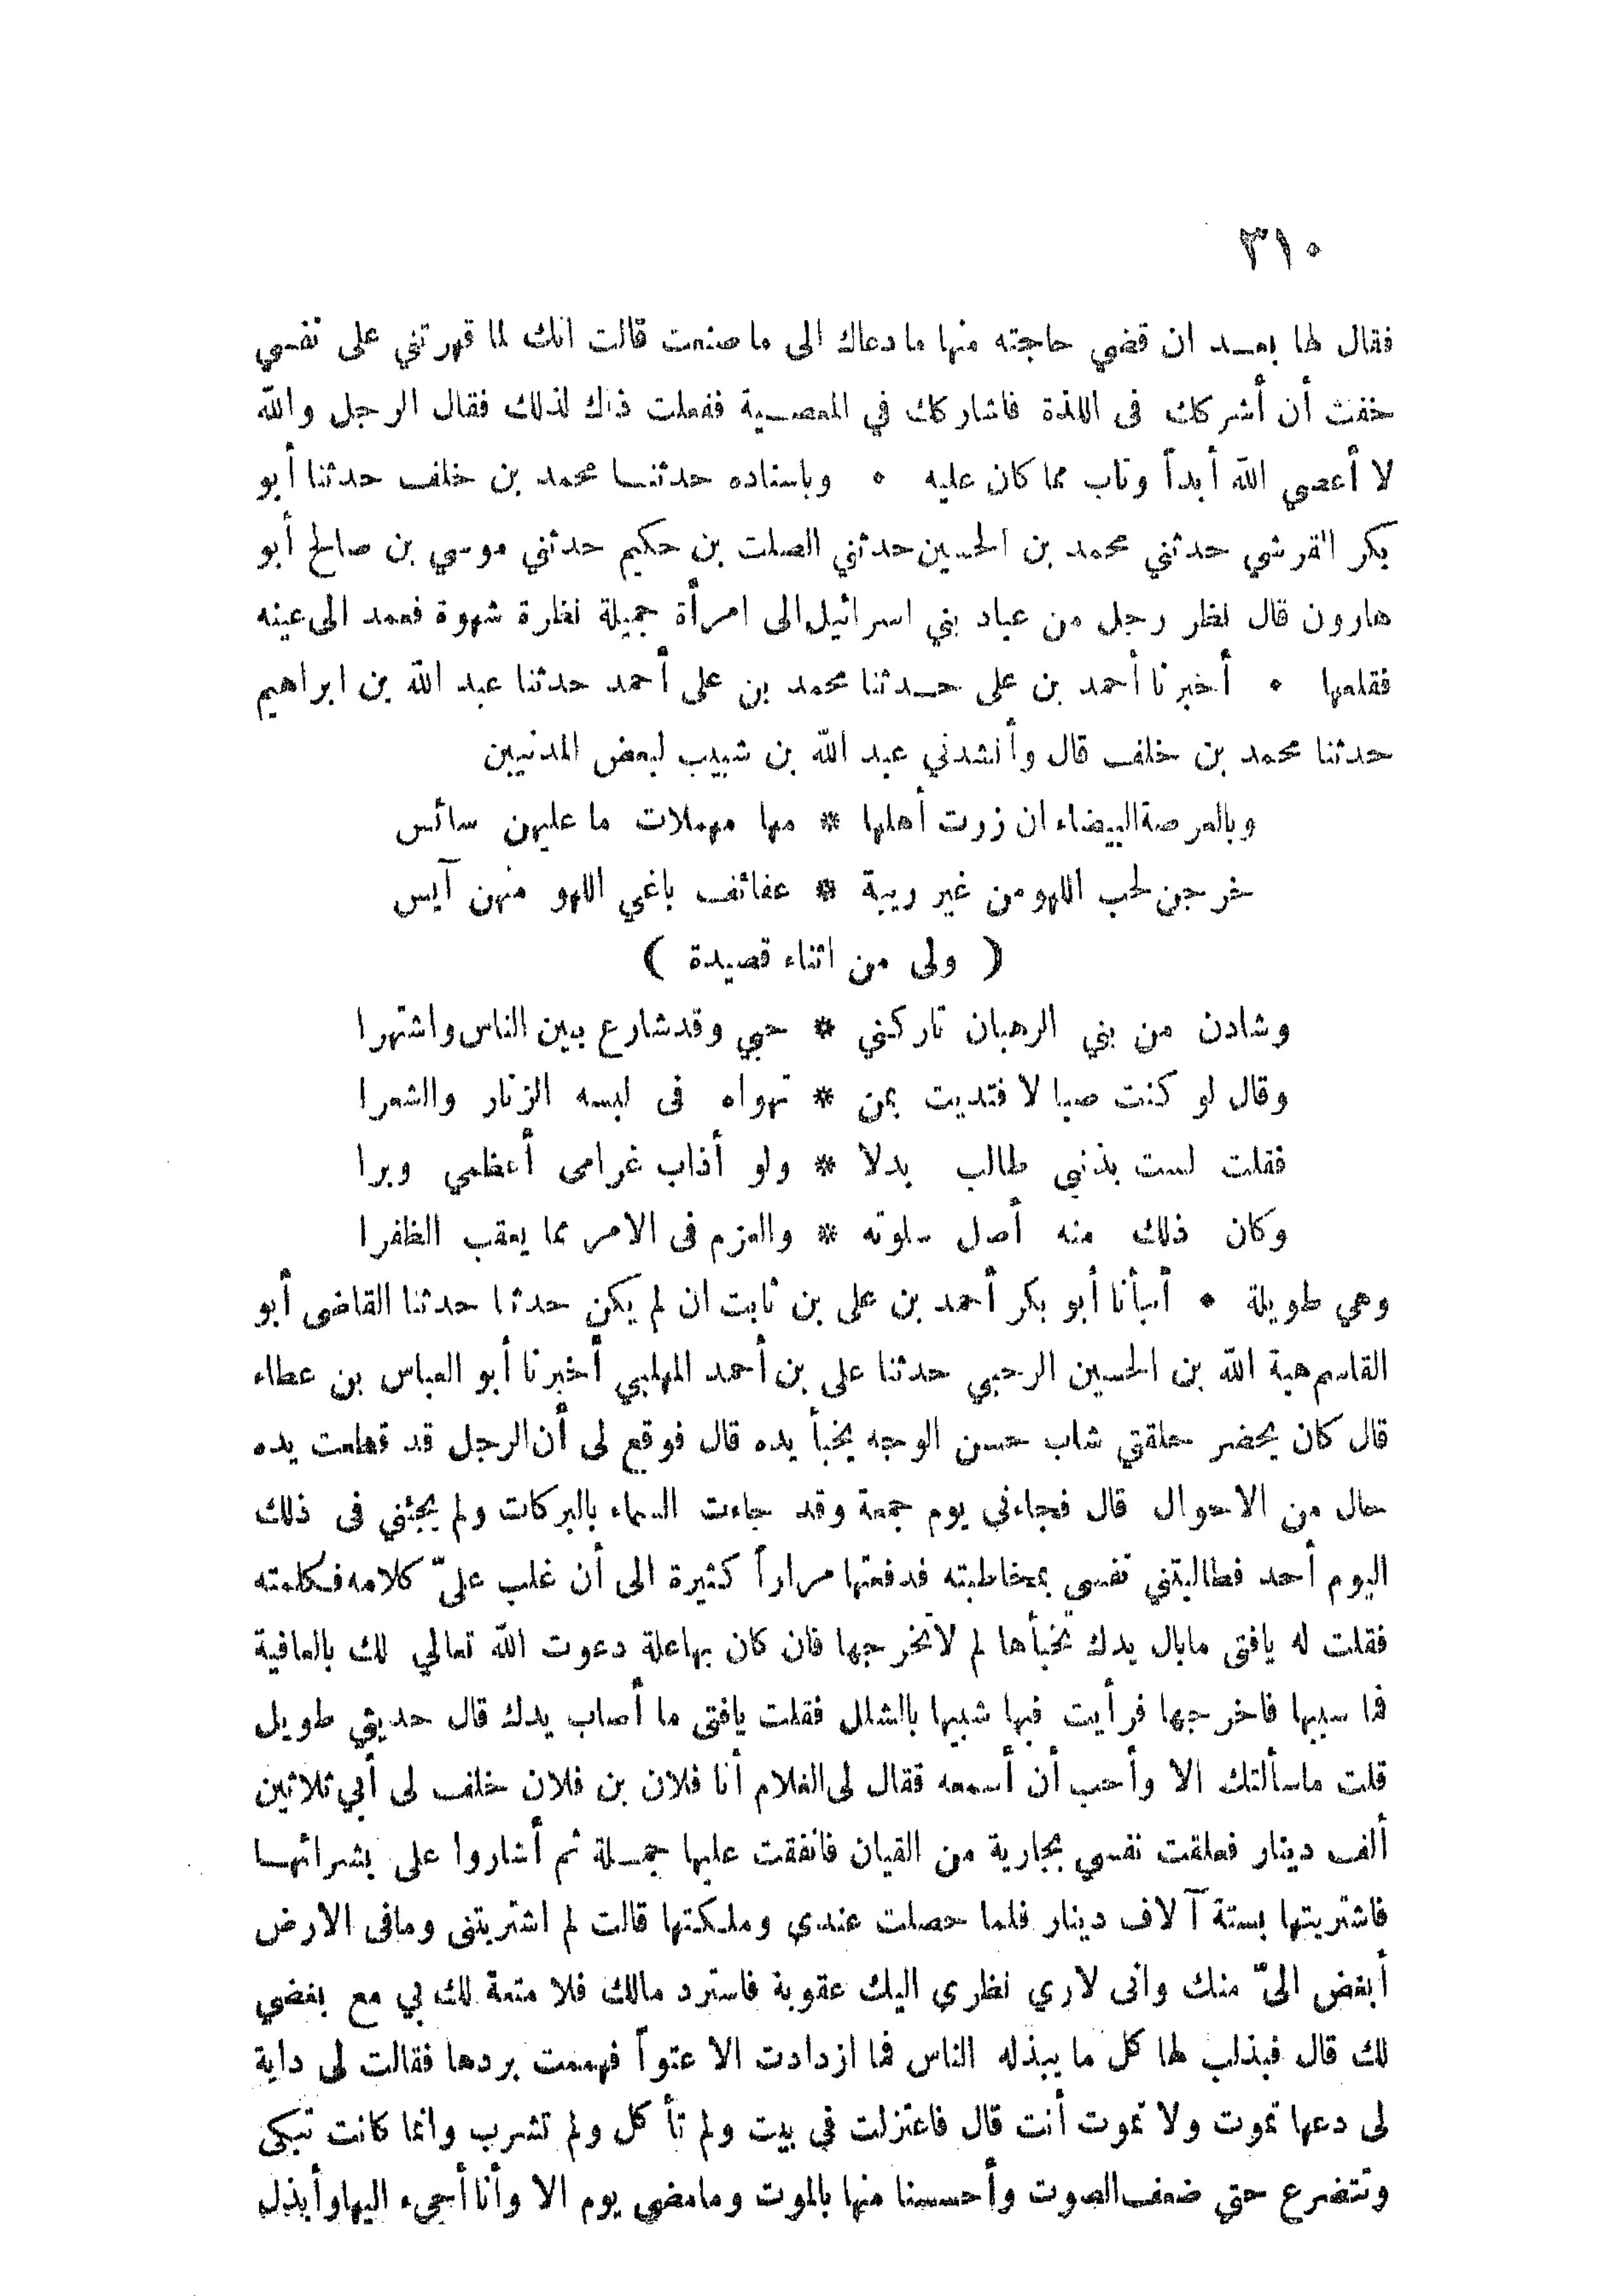 ٣١٠
فقال لها بعد ان قضي حاجته منها ما دعاك الى ما صنعت قالت انك لما قهرتني على نفسي
خفت أن أشركك فى اللذة فاشاركك في المعصية ففعلت ذاك لذلك فقال الرجل والله
لا أعصي الله أبداً وتاب مما كان عليه • وباسناده حدثنا محمد بن خلف حدثنا أبو
بكر القرشي حدثني محمد بن الحسين حدثني الصلت بن حكيم حدثني موسي بن صالح أبو
هارون قال نظر رجل من عباد بني اسرائيل الى امرأة جميلة نظرة شهوة فعمد الى عينه
فقلعها • أخبرنا أحمد بن على حدثنا محمد بن على أحمد حدثنا عبد الله بن ابراهيم
حدثنا محمد بن خلف قال وأنشدني عبد الله بن شبيب لبعض المدنيين
وبالعرصة البيضاء ان زرت أهلها * مها مهملات ما عليهن سائس
خرجن لحب اللهو من غير ريبة * عفائف باغي اللهو منهن آيس
( ولى من اثناء قصيدة )
وشادن من بني الرهبان تاركني * حبي وقد شارع بين الناس واشتهرا
وقال لو كنت صبا لا فتديت بمن * تهواه فى لبسه الزنار والشعرا
فقلت لست بذنبى طالب بدلا * ولو أذاب غرامى أعظمي وبرا
وكان ذلك منه أصل سلوته * والعزم فى الامر مما يعقب الظفرا
وهي طويلة • أنبأنا أبو بكر أحمد بن على بن ثابت ان لم يكن حدثنا حدثنا القاضى أبو
القاسم هبة الله بن الحسين الرحبي حدثنا على بن أحمد المهلبي أخبرنا أبو العباس بن عطاء
قال كان يحضر حلقتي شاب حسن الوجه يخبأ يده قال فوقع لى أن الرجل قد قطعت يده
حال من الاحوال قال فجاءني يوم جمعة وقد جاءت السماء بالبركات ولم يجئني فى ذلك
اليوم أحد فطالبتني نفسى بمخاطبته فدفعتها مراراً كثيرة الى أن غلب علىّ كلامه فكلمته
فقلت له يافتى مابال يدك تخبأها لم لا تخرجها فان كان بها علة دعوت الله تعالي لك بالعافية
فما سببها فاخرجها فرأيت فيها شبيها بالشلل فقلت يافتى ما أصاب يدك قال حديثي طويل
قلت ماسألتك الا وأحب أن أسمعه فقال لى الغلام أنا فلان بن فلان خلف لى أبي ثلاثين
ألف دينار فعلقت نفسي بجارية من القيان فانفقت عليها جملة ثم أشاروا على بشرائها
فاشتريتها بستة آلاف دينار فلما حصلت عندي وملكتها قالت لم اشتريتنى ومافى الارض
أبغض الىّ منك وانى لاري نظري اليك عقوبة فاسترد مالك فلا متعة لك بي مع بغضي
لك قال فبذلت لها كل ما يبذله الناس فما ازدادت الا عتواً فهممت بردها فقالت لى داية
لى دعها تموت ولا تموت أنت قال فاعتزلت في بيت ولم تأكل ولم تشرب وانما كانت تبكى
وتتضرع حتي ضعف الصوت وأحسسنا منها بالموت ومامضى يوم الا وأنا أجىء اليها وأبذل